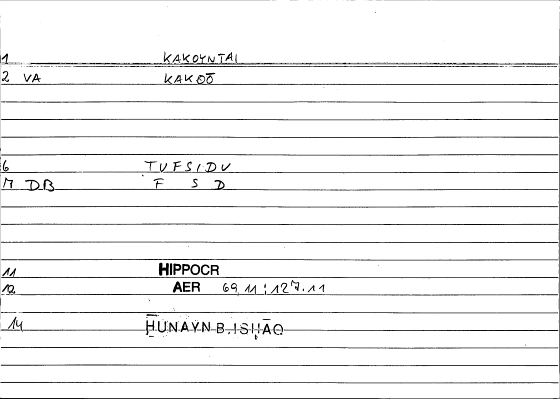 1 KAKOYNTAI
2 VA KAKOŌ
6 TUFSIDU
7 DB F S D
11 HIPPOCR
12 AER 69,11:127.11
14 ḤUNAYN B. ISḤĀQ